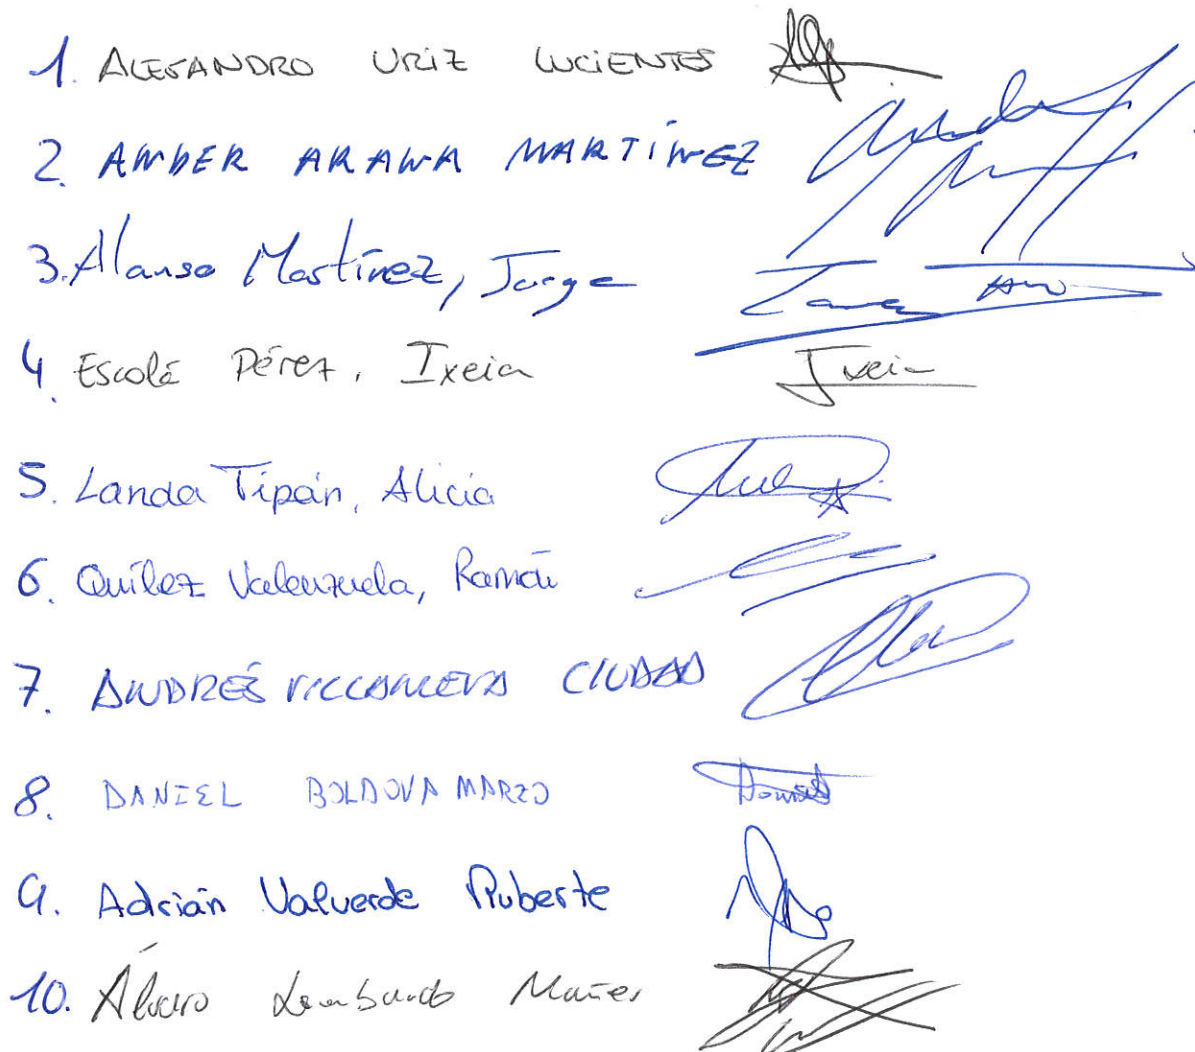 1. ALEJANDRO URIZ LUCIENTES
2. AMBER ARAWA MARTÍNEZ
3. Alonso Martínez, Jorge
4. Escolá Pérez, Ixeia Ixeia
5. Landa Tipán, Alicia
6. Quílez Valenzuela, Ramón
7. ANDRÉS VILLANUEVA CIUDAD
8. DANIEL BOLDOVA MARZO Daniel
9. Adrián Valverde Ruberte
10. Álvaro Lombardo